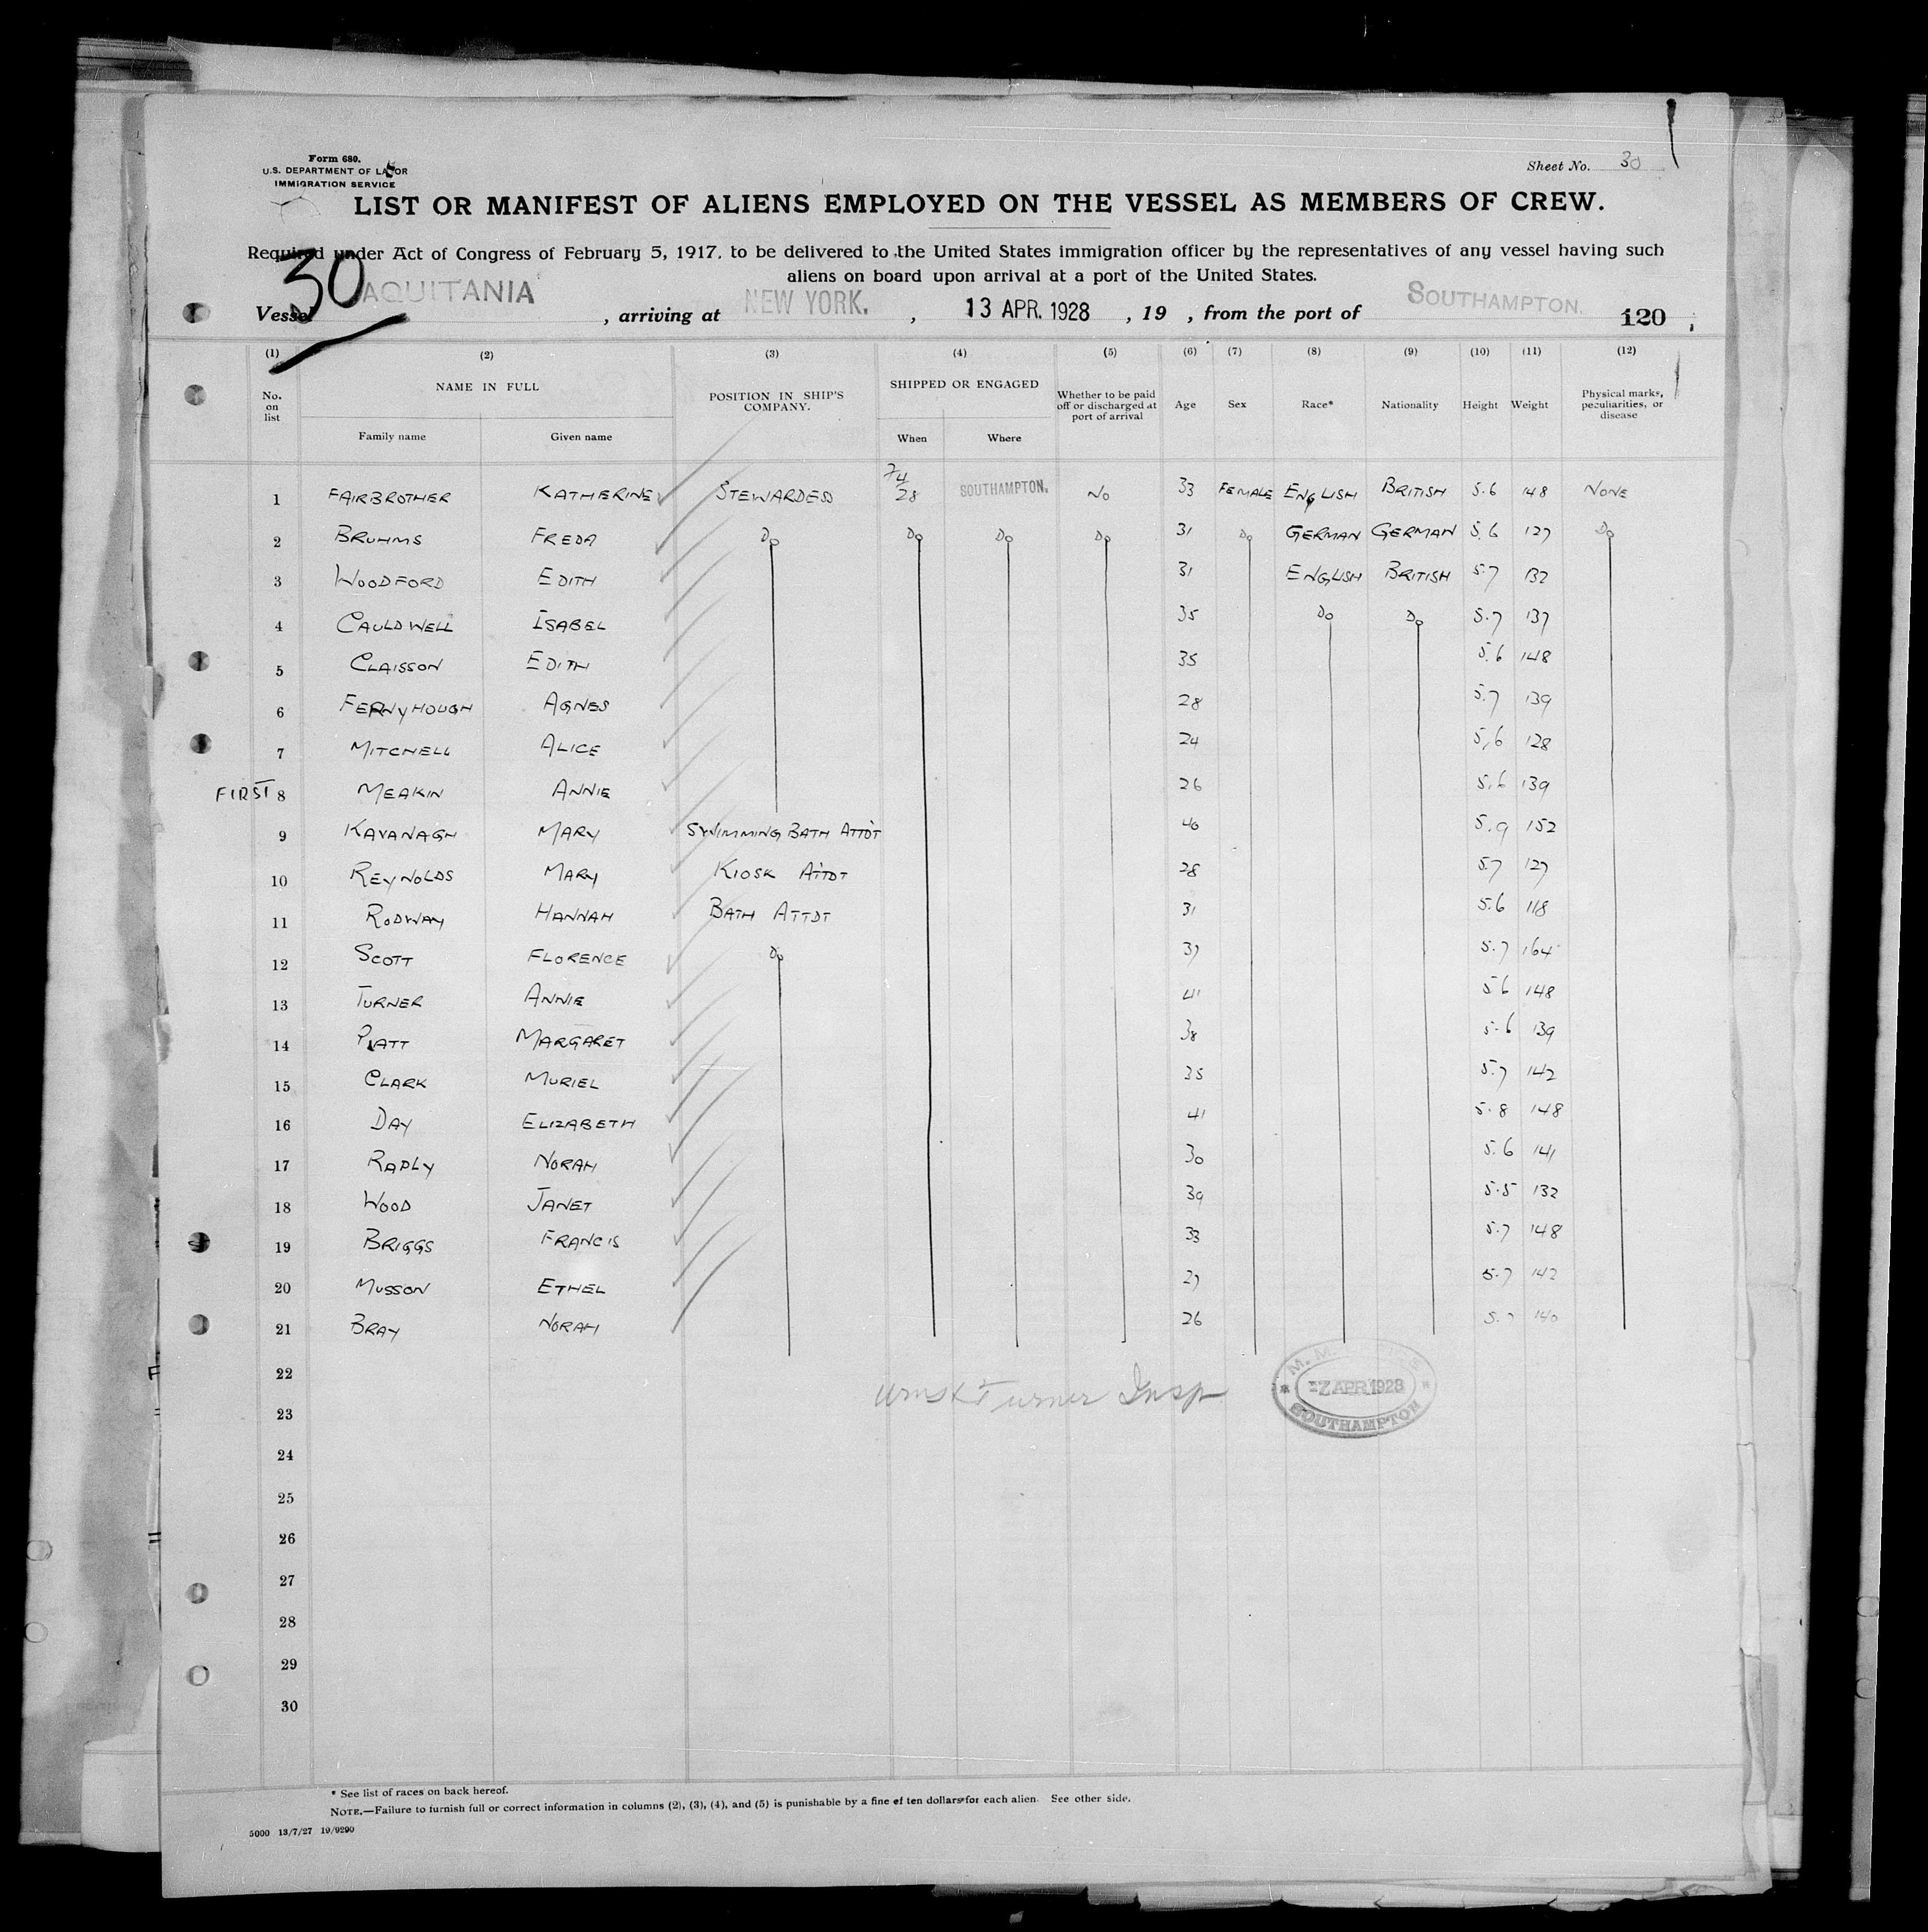 Form 680.
U.S. DEPARTMENT OF LABOR
IMMIGRATION SERVICE
Sheet No. 30
LIST OR MANIFEST OF ALIENS EMPLOYED ON THE VESSEL AS MEMBERS OF CREW.
Required under Act of Congress of February 5, 1917, to be delivered to the United States immigration officer by the representatives of any vessel having such
aliens on board upon arrival at a port of the United States.
30
Vessel AQUITANIA , arriving at NEW YORK. , 13 APR. 1928 , 19 , from the port of SOUTHAMPTON. 120
(1) (2) (3) (4) (5) (6) (7) (8) (9) (10) (11) (12)
No. on list NAME IN FULL POSITION IN SHIP'S COMPANY. SHIPPED OR ENGAGED Whether to be paid off or discharged at port of arrival Age Sex Race* Nationality Height Weight Physical marks, peculiarities, or disease
Family name Given name When Where
1 FAIRBROTHER KATHERINE STEWARDESS 7/4 28 SOUTHAMPTON. NO 33 FEMALE ENGLISH BRITISH 5.6 148 NONE
2 BRUHMS FREDA Do Do Do Do 31 Do GERMAN GERMAN 5.6 127 Do
3 WOODFORD EDITH 31 ENGLISH BRITISH 5.7 132
4 CAULDWELL ISABEL 35 Do Do 5.7 137
5 CLAISSON EDITH 35 5.6 148
6 FERNYHOUGH AGNES 28 5.7 139
7 MITCHELL ALICE 24 5.6 128
FIRST 8 MEAKIN ANNIE 26 5.6 139
9 KAVANAGH MARY SWIMMING BATH ATTDT 40 5.9 152
10 REYNOLDS MARY KIOSK ATTDT 28 5.7 127
11 RODWAY HANNAH BATH ATTDT 31 5.6 118
12 SCOTT FLORENCE Do 37 5.7 164
13 TURNER ANNIE 41 5.6 148
14 PLATT MARGARET 38 5.6 139
15 CLARK MURIEL 35 5.7 142
16 DAY ELIZABETH 41 5.8 148
17 RAPLY NORAH 30 5.6 141
18 WOOD JANET 39 5.5 132
19 BRIGGS FRANCIS 33 5.7 148
20 MUSSON ETHEL 27 5.7 142
21 BRAY NORAH 26 5.7 140
22
Turner Insp
7 APR 1928
SOUTHAMPTON
23
24
25
26
27
28
29
30
* See list of races on back hereof.
NOTE.—Failure to furnish full or correct information in columns (2), (3), (4), and (5) is punishable by a fine of ten dollars for each alien. See other side.
5000 13/7/27 19/9290